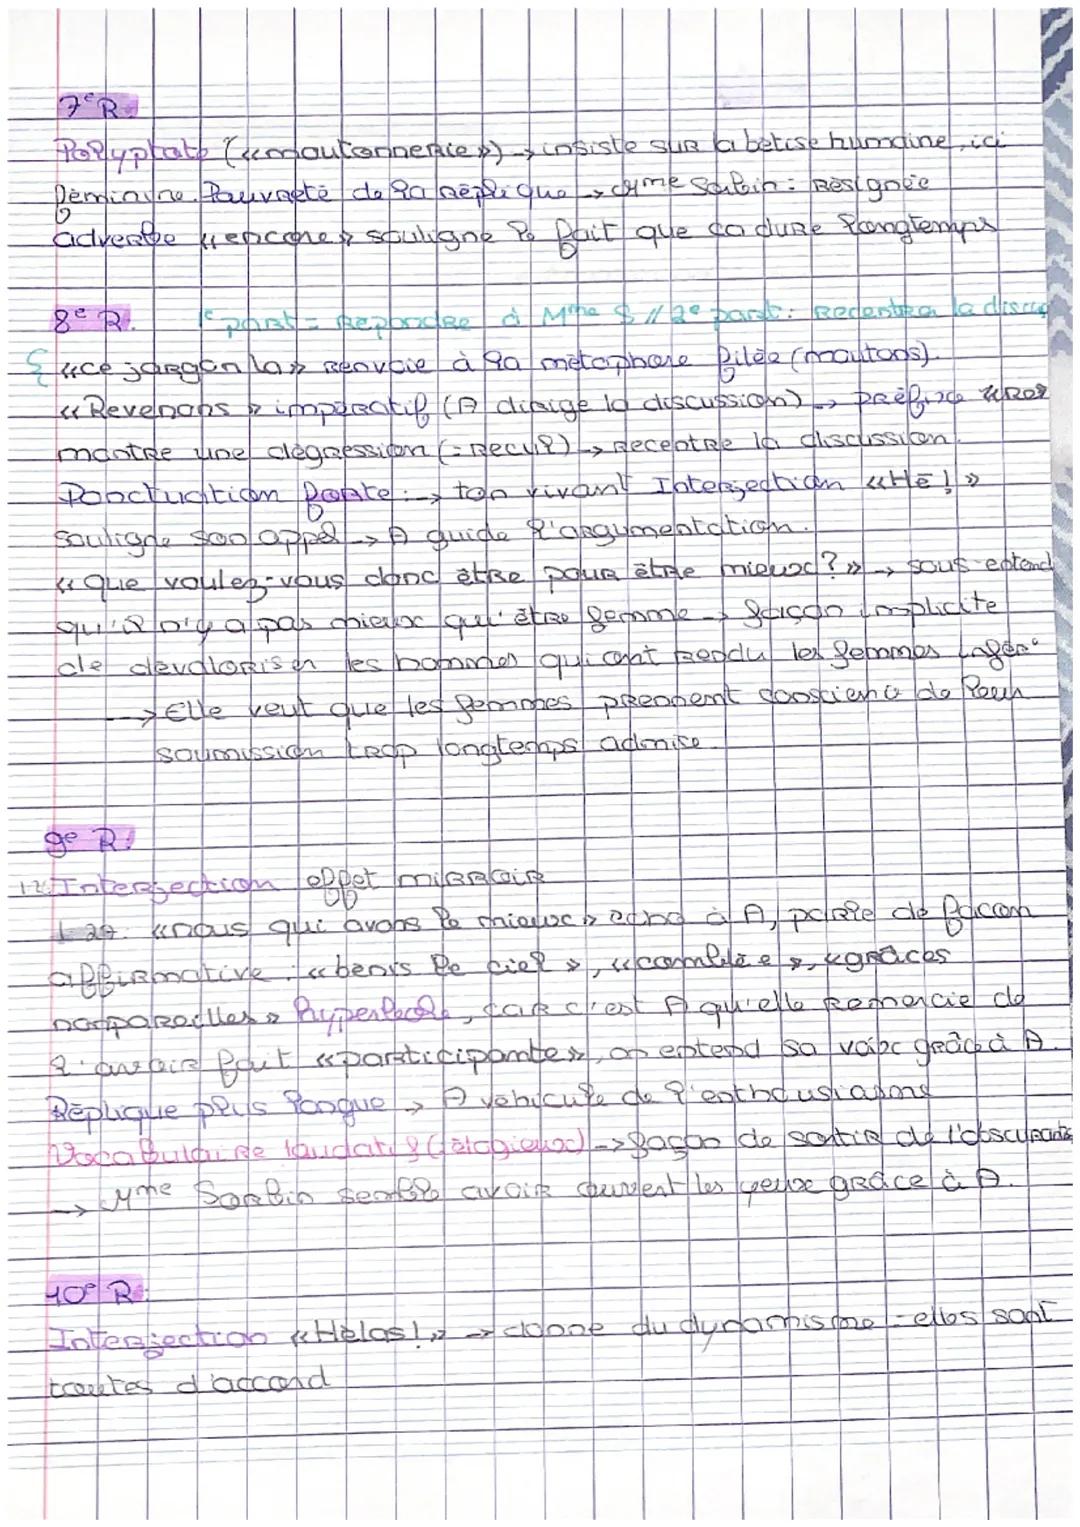 7° R.
Polyptote (« moutonnerie ») → insiste sur la bêtise humaine, ici
féminine. Pauvreté de la réplique → Mme Sorbin : résignée
adverbe « encore » souligne le fait que ça dure longtemps
8e R. 1e part = Répondre à Mme S // 2e part : Recentrer la discu
« ce jargon la » renvoie à la métaphore filée (moutons).
« Revenons » impératif (A dirige la discussion) → préfixe « Re »
montre une dégression (= recul) → recentre la discussion.
Ponctuation forte : → ton vivant Interjection « Hé ! »
souligne son appel → A guide l'argumentation.
« que voulez-vous donc être pour être mieux ? » → sous-entend
qu'il n'y a pas mieux qu'être femme → façon implicite
de dévaloriser les hommes qui ont rendu les femmes infér°
→ Elle veut que les femmes prennent conscience de leur
soumission trop longtemps admise.
9e R.
Interjection effet mirroir
L 29. « nous qui avons le mieux » à A, parle de façon
affirmative : « benis le ciel », « comblée », « grâces
nonpareilles » hyperbole, car c'est A qu'elle remercie de
l'avoir fait « participante », on entend sa voix grâce à A.
Réplique plus longue → A véhicule de l'enthousiasme
Vocabulaire laudatif (élogieux) → façon de sortir de l'obscurantis
→ Mme Sorbin semble avoir ouvert les yeux grâce à A.
10e R.
Interjection « Hélas ! » → donne du dynamisme = elles sont
toutes d'accord